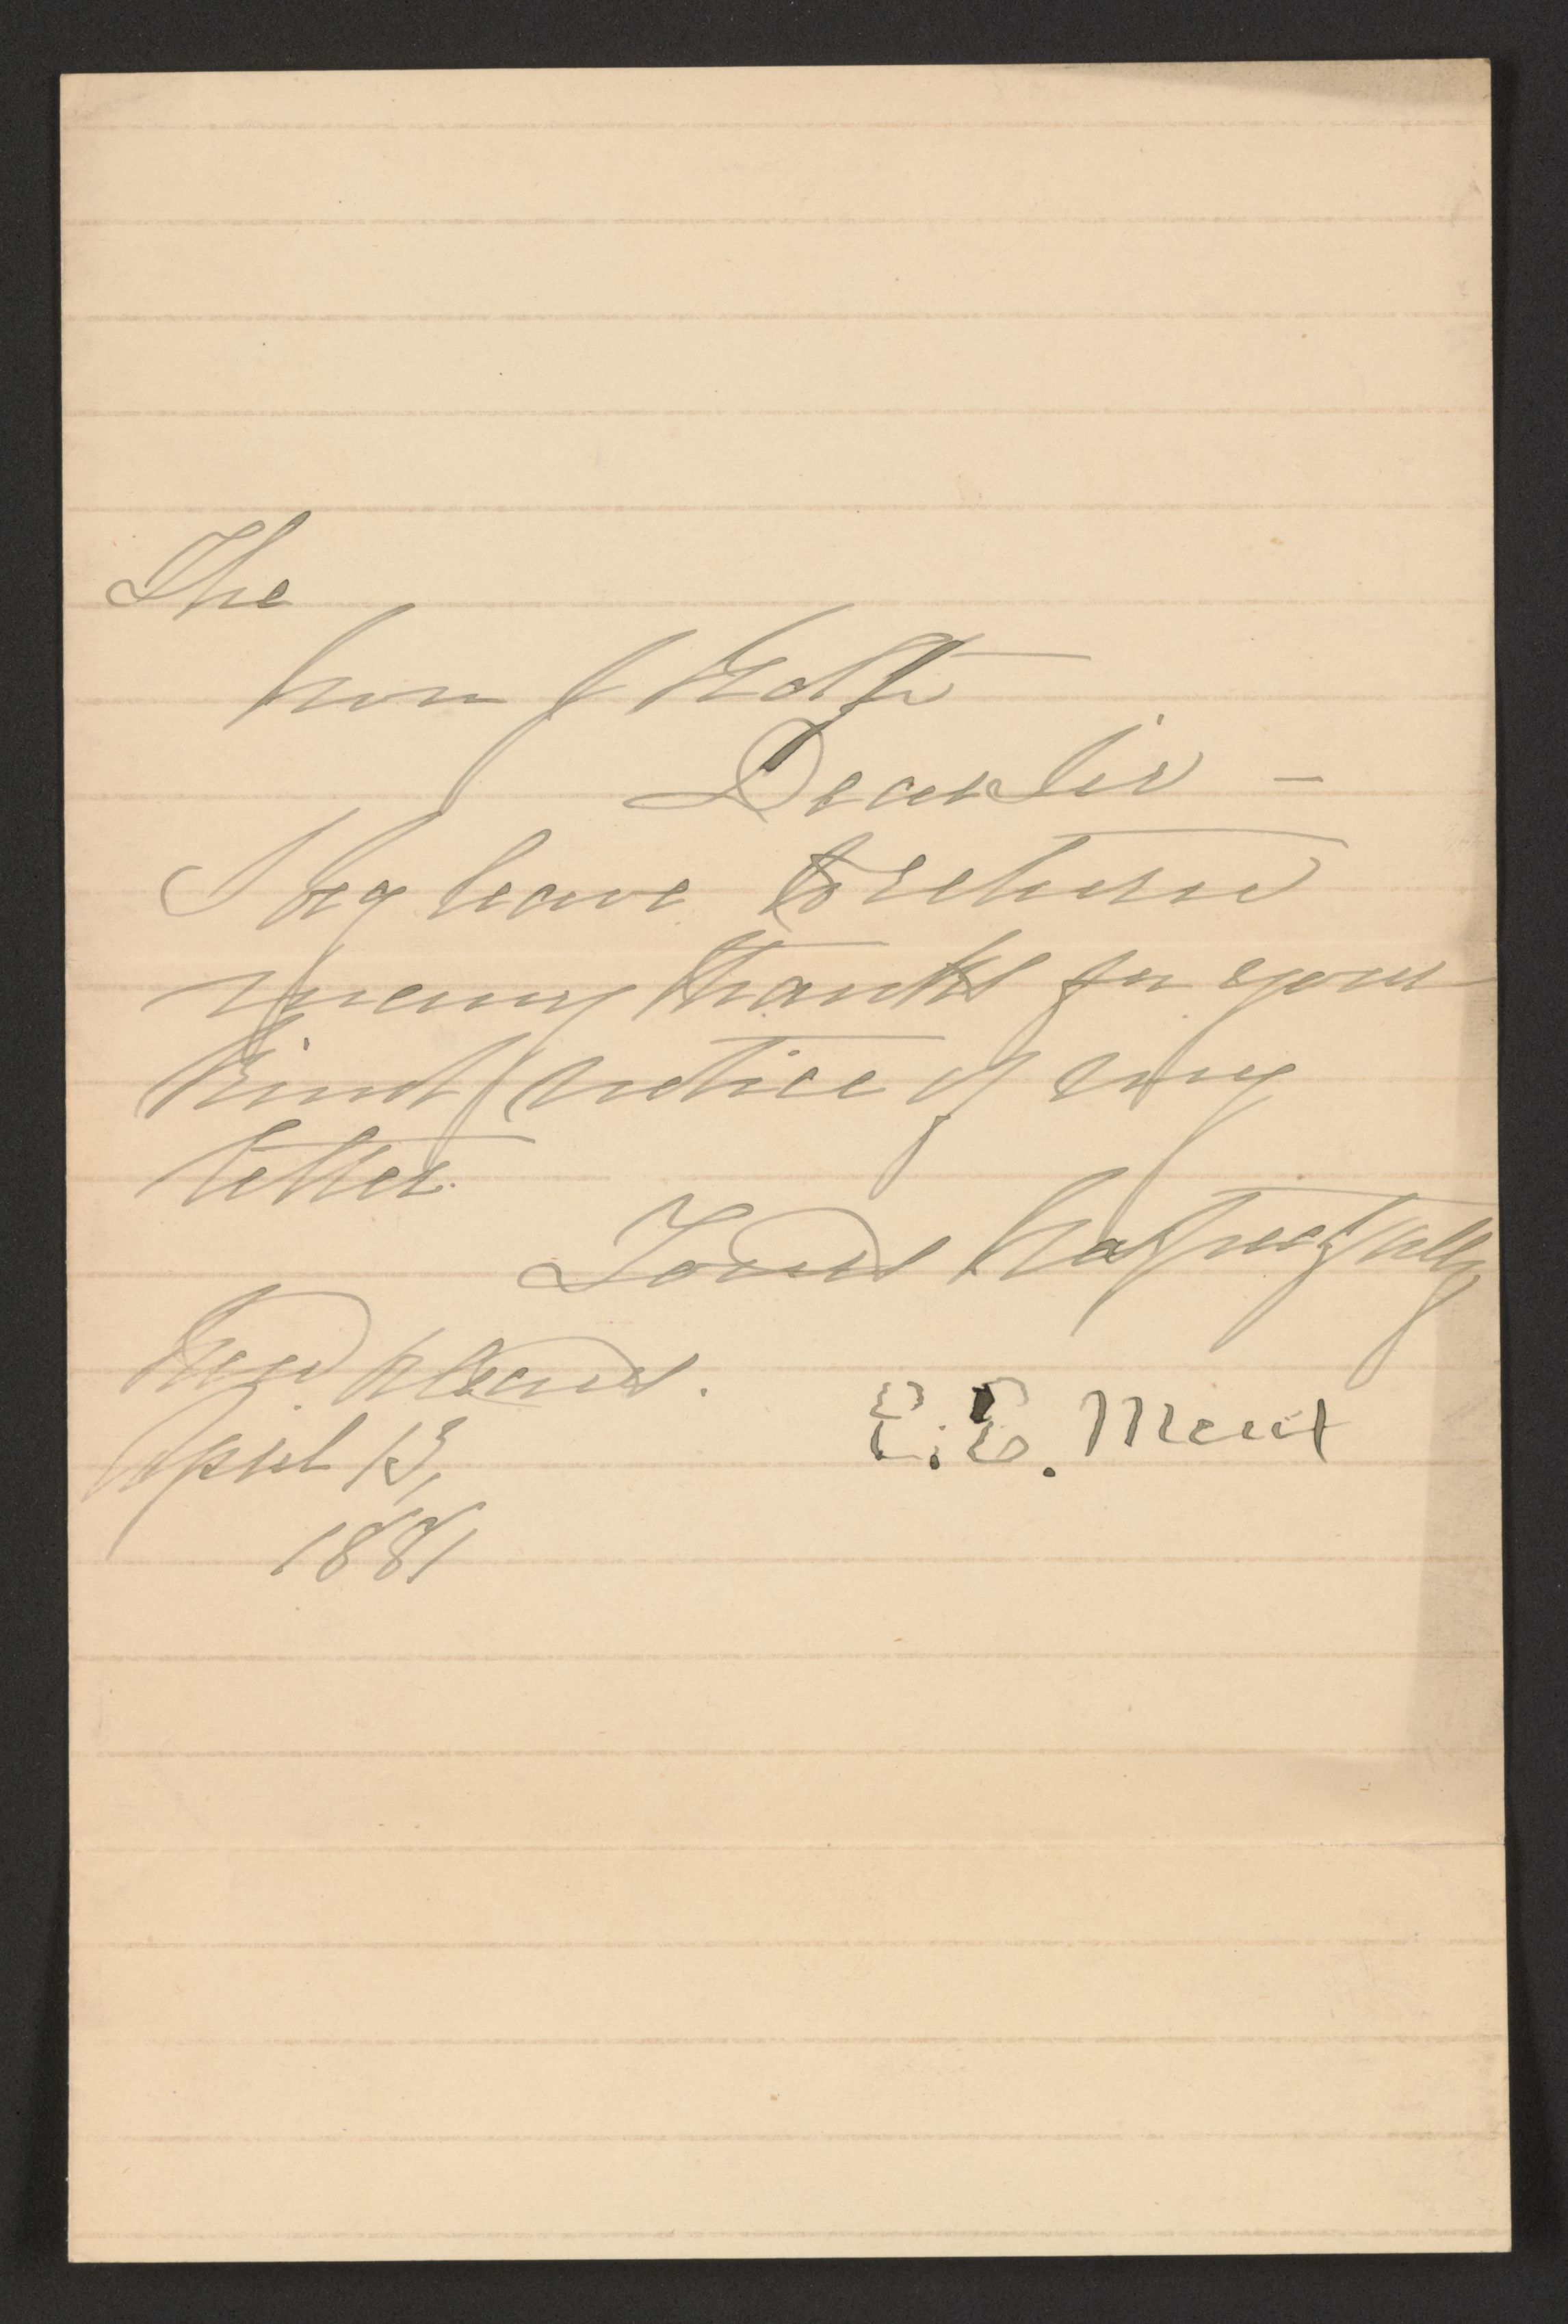 The
hon J Holt
Dear Sir —
I beg leave to return
many thanks for your
kind notice of my
letter.
Yours Respectfully
New Orleans.
E. E. Ment
April 13,
1881